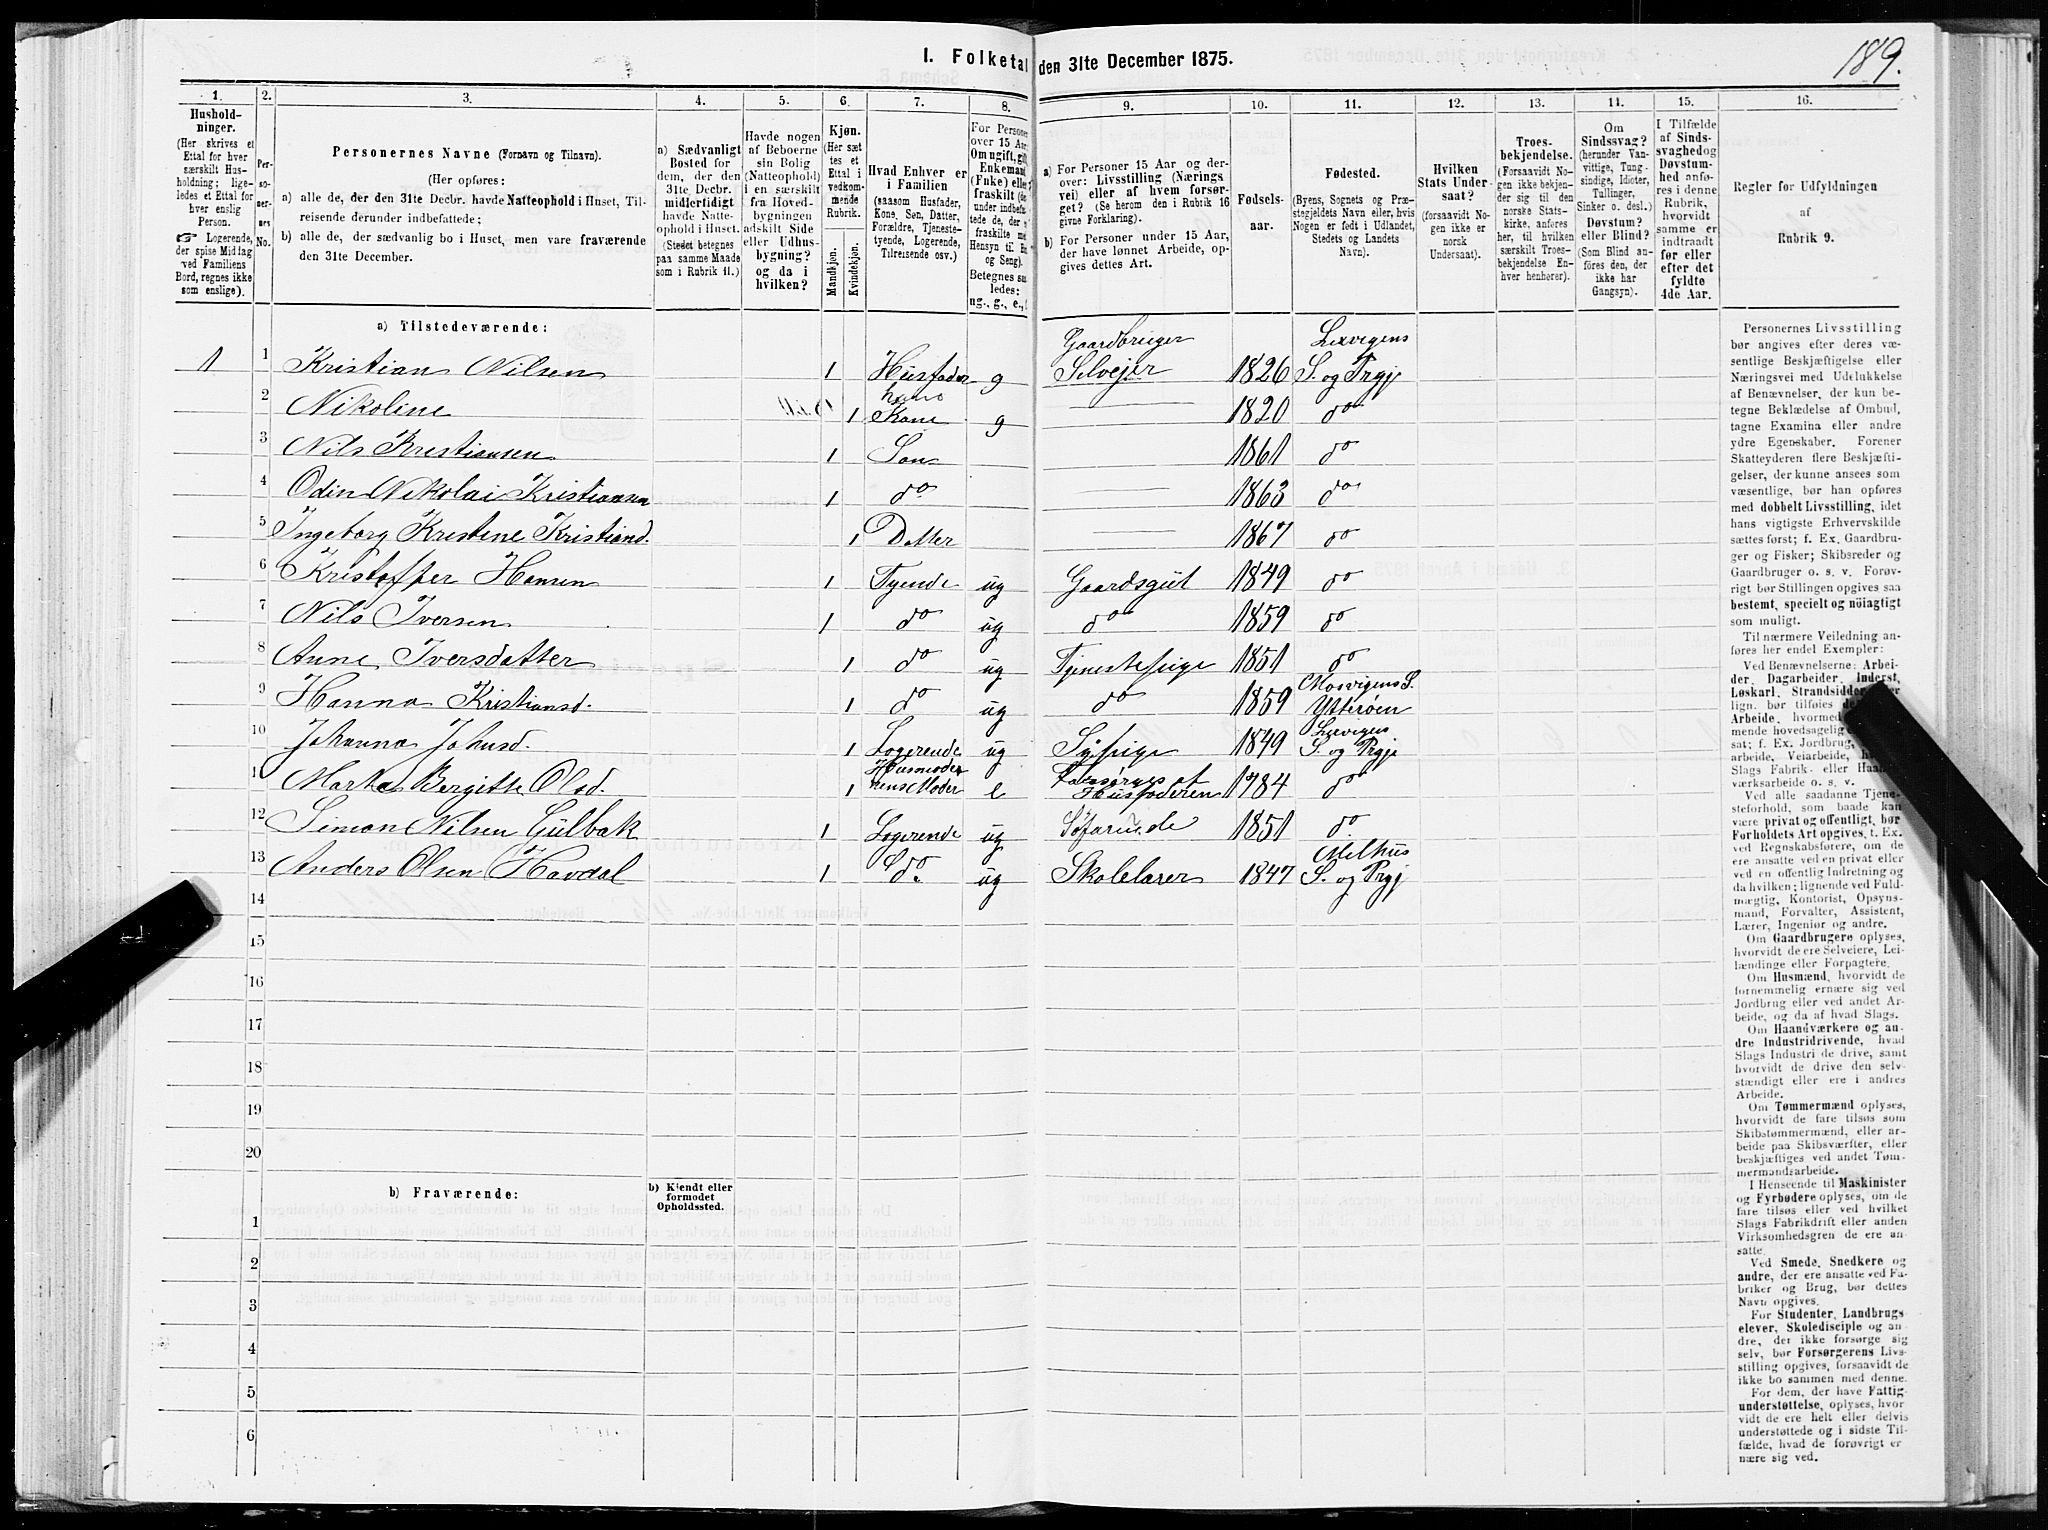 I. Folketal den 31te December 1875.
189.
1. 2. 3. 4. 5. 6. 7. 8. 9. 10. 11. 12. 13. 14. 15. 16.
Husholdninger.
(Her skrives et Ettal for hver særskilt Husholdning; ligeledes et Ettal for hver enslig Person.
☞ Logerende, der spise Middag ved Familiens Bord, regnes ikke som enslige).
Personernes No.
Personernes Navne (Fornavn og Tilnavn).
(Her opføres:
a) alle de, der den 31te Decbr. havde Natteophold i Huset, Tilreisende derunder indbefattede;
b) alle de, der sædvanlig bo i Huset, men vare fraværende den 31te December.
a) Sædvanligt Bosted for dem, der den 31te Decbr. midlertidigt havde Natteophold i Huset. (Stedet betegnes paa samme Maade som i Rubrik 11.)
Havde nogen af Beboerne sin Bolig (Natteophold) i en særskilt fra Hovedbygningen adskilt Side eller Udhusbygning? og da i hvilken?
Kjøn. (Her sættes et Ettal i vedkommende Rubrik.
Mandkjøn.
Kvindekjøn.
Hvad Enhver er i Familien
(saasom Husfader, Kone, Søn, Datter, Forældre, Tjenestetyende, Logerende, Tilreisende osv.)
For Personer over 15 Aar: Om ugift, gift, Enkemand (Enke) eller fraskilt
Betegnes saaledes: ug., g., e., f.
a) For Personer 15 Aar og derover: Livsstilling (Næringsvei) eller af hvem forsørget? (Se herom den i Rubrik 16 givne Forklaring).
b) For Personer under 15 Aar, der have lønnet Arbeide, opgives dettes Art.
Fødselsaar.
Fødested.
(Byens, Sognets og Præstegjeldets Navn eller, hvis Nogen er født i Udlandet, Stedets og Landets Navn).
Hvilken Stats Undersaat?
(forsaavidt Nogen ikke er norsk Undersaat).
Troesbekjendelse.
(Forsaavidt Nogen ikke bekjender sig til den norske Statskirke, anføres her, til hvilken særskilt Troesbekjendelse Enhver henhører).
Om Sindssvag? (herunder Vanvittige, Tungsindige, Idioter, Tullinger, Sinker o. desl.) Døvstum? eller Blind? (Som Blind anføres den, der ikke har Gangsyn).
I Tilfælde af Sindssvaghed og Døvstumhed anføres i denne Rubrik, hvorvidt samme er indtraadt før eller efter det fyldte 4de Aar.
Regler for Udfyldningen af Rubrik 9.
a) Tilstedeværende:
1 1 Kristian Nilsen 1 Husfader g Gaardbruger Selvejer 1826 Lexvigens S. og Prgj
2 Nikoline 1 hans Kone g 1820 do
3 Nils Kristiansen 1 Søn 1861 do
4 Odin Nikolai Kristiansen 1 do 1863 do
5 Ingeborg Kristine Kristiand. 1 Datter 1867 do
6 Kristoffer Hansen 1 Tyende ug Gaardsgut 1849 do
7 Nils Iversen 1 do ug do 1859 do
8 Anne Iversdatter 1 do ug Tjenestepige 1851 do
9 Hanna Kristiansd. 1 do ug do 1859 Mosvigens S. Ytterøen
10 Johanna Johnsd. 1 Logerende ug Sypige 1849 Lexvigens S. og Prgj
11 Marta Bergitte Olsd. 1 Husmoderens Moder e Forsørges af Husfaderen 1784 do
12 Simon Nilsen Gulbak 1 Logerende ug Søfarende 1851 do.
13 Anders Olsen Havdal 1 do. ug Skolelærer 1847 Melhus S. og Prgj
14
15
16
17
18
19
20
b) Fraværende:
b) Kjendt eller formodet Opholdssted.
1
2
3
4
5
6
Personernes Livsstilling
bør angives efter deres væ-
sentlige Beskjæftigelse eller
Næringsvei med Udelukkelse
af Benævnelser, der kun be-
tegne Beklædelse af Ombud,
tagne Examina eller andre
ydre Egenskaber. Forener
Skatteyderen flere Beskjæfti-
gelser, der kunne ansees som
væsentlige, bør han opføres
med dobbelt Livsstilling, idet
hans vigtigste Erhvervskilde
sættes først; f. Ex. Gaardbru-
ger og Fisker; Skibsreder og
Gaardbruger o. s. v. Forøv-
rigt bør Stillingen opgives saa
bestemt, specielt og nöiagtigt
som muligt.
Til nærmere Veiledning an-
føres her endel Exempler:
Ved Benævnelserne: Arbei-
der, Dagarbeider, Inderst,
Løskarl, Strandsidder
lign. bør tilføies
Arbeide,
sat; f. Ex. Jordbrug,
arbeide, Veiarbeide,
Slags Fabrik- eller
værksarbeide o. s. v.
Ved alle saadanne Tjene-
steforhold, som baade kan
være privat og offentligt, bør
Forholdets Art opgives, t. Ex.
ved Regnskabsførere, om de
ere ansatte ved en privat eller
ved en offentlig Indretning og
da hvilken; lignende ved Fuld-
mægtig, Kontorist, Opsyns-
mand, Forvalter, Assistent,
Lærer, Ingeniør og andre.
Om Gaardbrugere oplyses,
hvorvidt de ere Selveiere, Lei-
lændinge eller Forpagtere.
Om Husmænd, hvorvidt de
fornemmelig ernære sig ved
Jordbrug eller ved andet Ar-
beide, og da af hvad Slags.
Om Haandværkere og an-
dre Industridrivende, hvad
Slags Industri de drive, samt
hvorvidt de drive den selv-
stændigt eller ere i andres
Arbeide.
Om Tømmermænd oplyses,
hvorvidt de fare tilsøs som
Skibstømmermænd, eller ar-
beide paa Skibsværfter, eller
beskjæftiges ved andet Tøm-
mermandsarbeide.
I Henseende til Maskinister
og Fyrbødere oplyses, om de
fare tilsøs eller ved hvilket
Slags Fabrikdrift eller anden
Virksomhedsgren de ere an-
satte.
Ved Smede, Snedkere og
andre, der ere ansatte ved Fa-
briker og Brug, bør dettes
Navn opgives.
For Studenter, Landbrugs-
elever, Skoledisciple og an-
dre, der ikke forsørge sig
selv, bør Forsørgerens Livs-
stilling opgives, forsaavidt de
ikke bo sammen med denne.
For dem, der have Fattig-
understøttelse, oplyses, hvor-
vidt de ere helt eller delvis
understøttede og i sidste Til-
fælde, hvad de forøvrigt er-
nære sig ved.